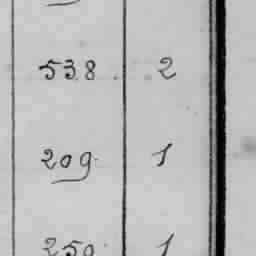 538. 2
209. 1
250. 1